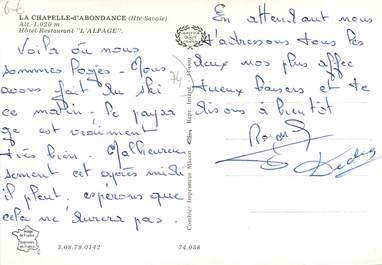 LA CHAPELLE-d'ABONDANCE (Hte-Savoie)
Alt. 1.020 m
Hôtel-Restaurant "L'ALPAGE".
Voilà où nous
sommes logés - Nous
avons fait du ski
ce matin; le paysa
ge est vraiment
très bien. Malheureu
sement cet après midi
il pleut. espérons que
cela ne durera pas.
En attendant nous
t'adressons tous les
deux nos plus affec
tueux baisers et te
disons à bientôt
Dédée
74
Combier Imprimeur Macon
3.08.79.0142
74.058